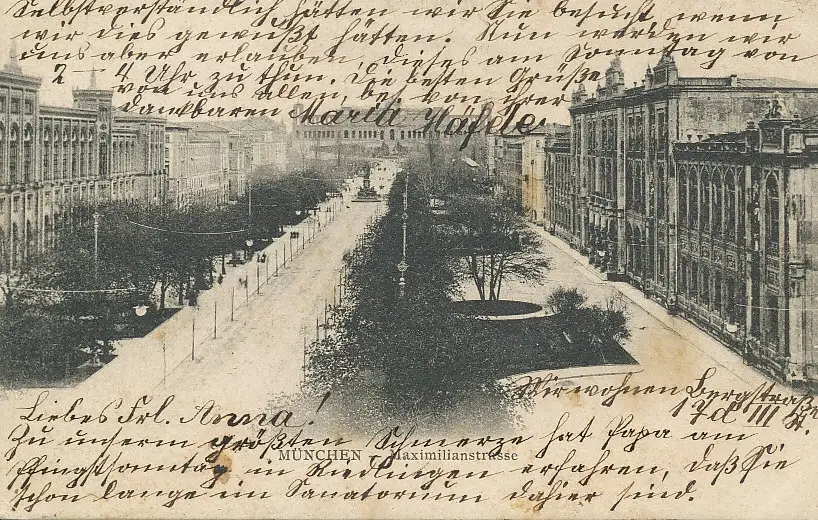 Liebes Frl. Anna!
Zu unserm größten Schmerze hat Papa am
Pfingstsonntag in Riedlingen erfahren, daß Sie
schon lange im Sanatorium dahier sind.
Selbstverständlich hätten wir Sie besucht, wenn
wir dies gewußt hätten. Nun werden wir
uns aber erlauben, dieses am Sonntag von
2 – 4 Uhr zu thun. Die besten Grüße
von uns Allen, bes. von Ihrer
dankbaren Maria Häfele
Wir wohnen Bergstraße
17d III St.
MÜNCHEN – Maximilianstrasse